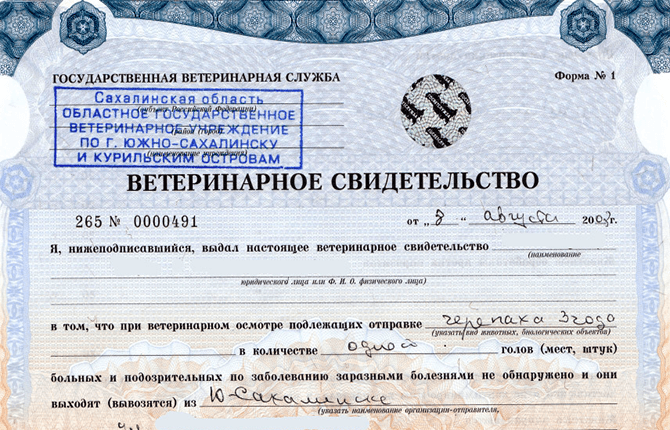 ГОСУДАРСТВЕННАЯ ВЕТЕРИНАРНАЯ СЛУЖБА
Форма № 1
Сахалинская область
(субъект Российской Федерации)
ОБЛАСТНОЕ ГОСУДАРСТВЕННОЕ
ВЕТЕРИНАРНОЕ УЧРЕЖДЕНИЕ
(район (город)
ПО Г. ЮЖНО-САХАЛИНСКУ
(наименование учреждения)
И КУРИЛЬСКИМ ОСТРОВАМ
ВЕТЕРИНАРНОЕ СВИДЕТЕЛЬСТВО
265 № 0000491
от „8" августа 2008г.
Я, нижеподписавшийся, выдал настоящее ветеринарное свидетельство
(наименование
юридического лица или Ф. И. О. физического лица)
в том, что при ветеринарном осмотре подлежащих отправке черепаха 3 года
(указать вид животных, биологических объектов)
в количестве одной голов (мест, штук)
больных и подозрительных по заболеванию заразными болезнями не обнаружено и они
выходят (вывозятся) из Ю-Сахалинске
(указать наименование организации-отправителя,